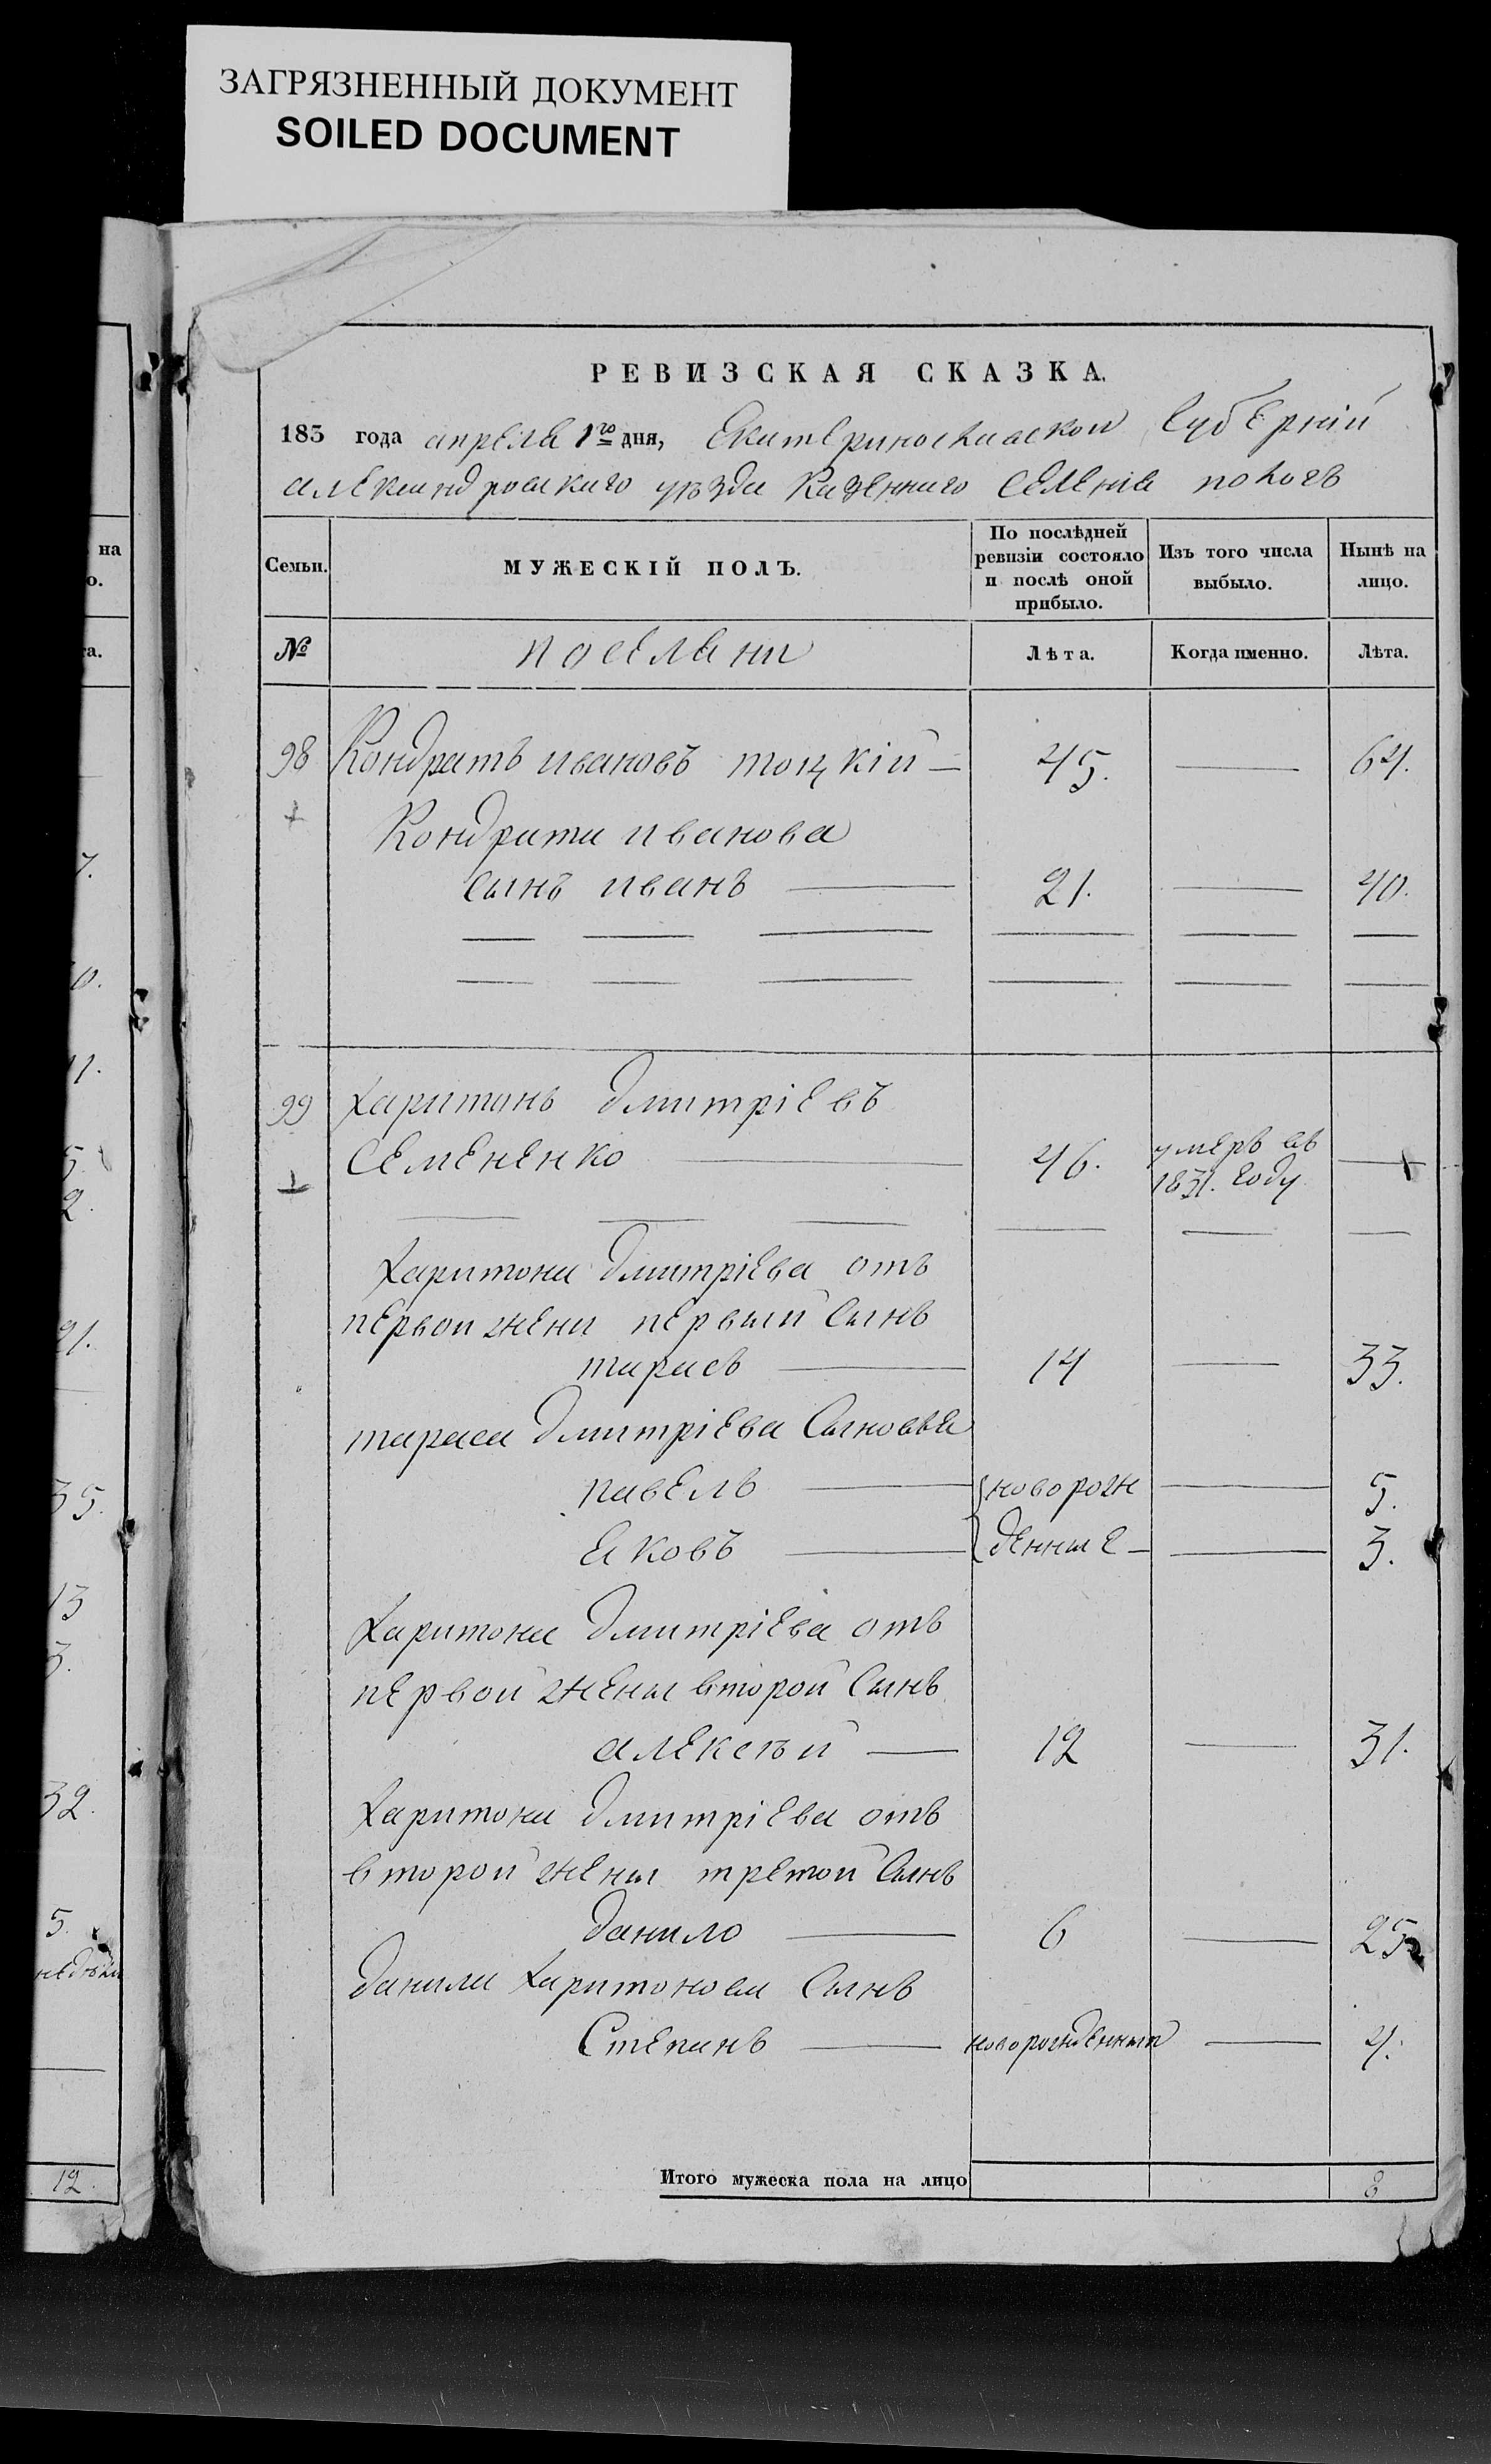 ЗАГРЯЗНЕННЫЙ ДОКУМЕНТ
SOILED DOCUMENT
РЕВИЗСКАЯ СКАЗКА.
183 года апреля 1го дня, Екатеринославской Губернiй
александровскаго уѣзда Казенного Селения покогъ
Семьи. МУЖЕСКІЙ ПОЛЪ. По послѣдней ревизіи состояло и послѣ оной прибыло. Изъ того числа выбыло. Нынѣ на лицо.
№ поселяни Лѣта. Когда именно. Лѣта.
98 Кондратъ ивановъ тоцкій — 45. — 64.
Кондрата иванова
сынъ иванъ — 21. — 40.
99 харитонъ дмитріевъ
Семененко — 46. умеръ въ 1831. году —
харитона дмитріева отъ
первои жени первый сынъ
тарасъ — 14 — 33.
тараса дмитріева сыновья
павелъ — новорож — 5.
яковъ — денные — — 3.
харитона дмитріева отъ
первой жены второй сынъ
алексѣй — 12 — 31.
харитона дмитріева отъ
второй жены третой сынъ
данило — 6 — 25
данила харитонова сынъ
Степанъ — новорожденный — 4.
Итого мужеска пола на лицо 8
на
о.
а.
7.
0.
11.
5.
2.
21.
35.
13
3.
32.
5.
12.